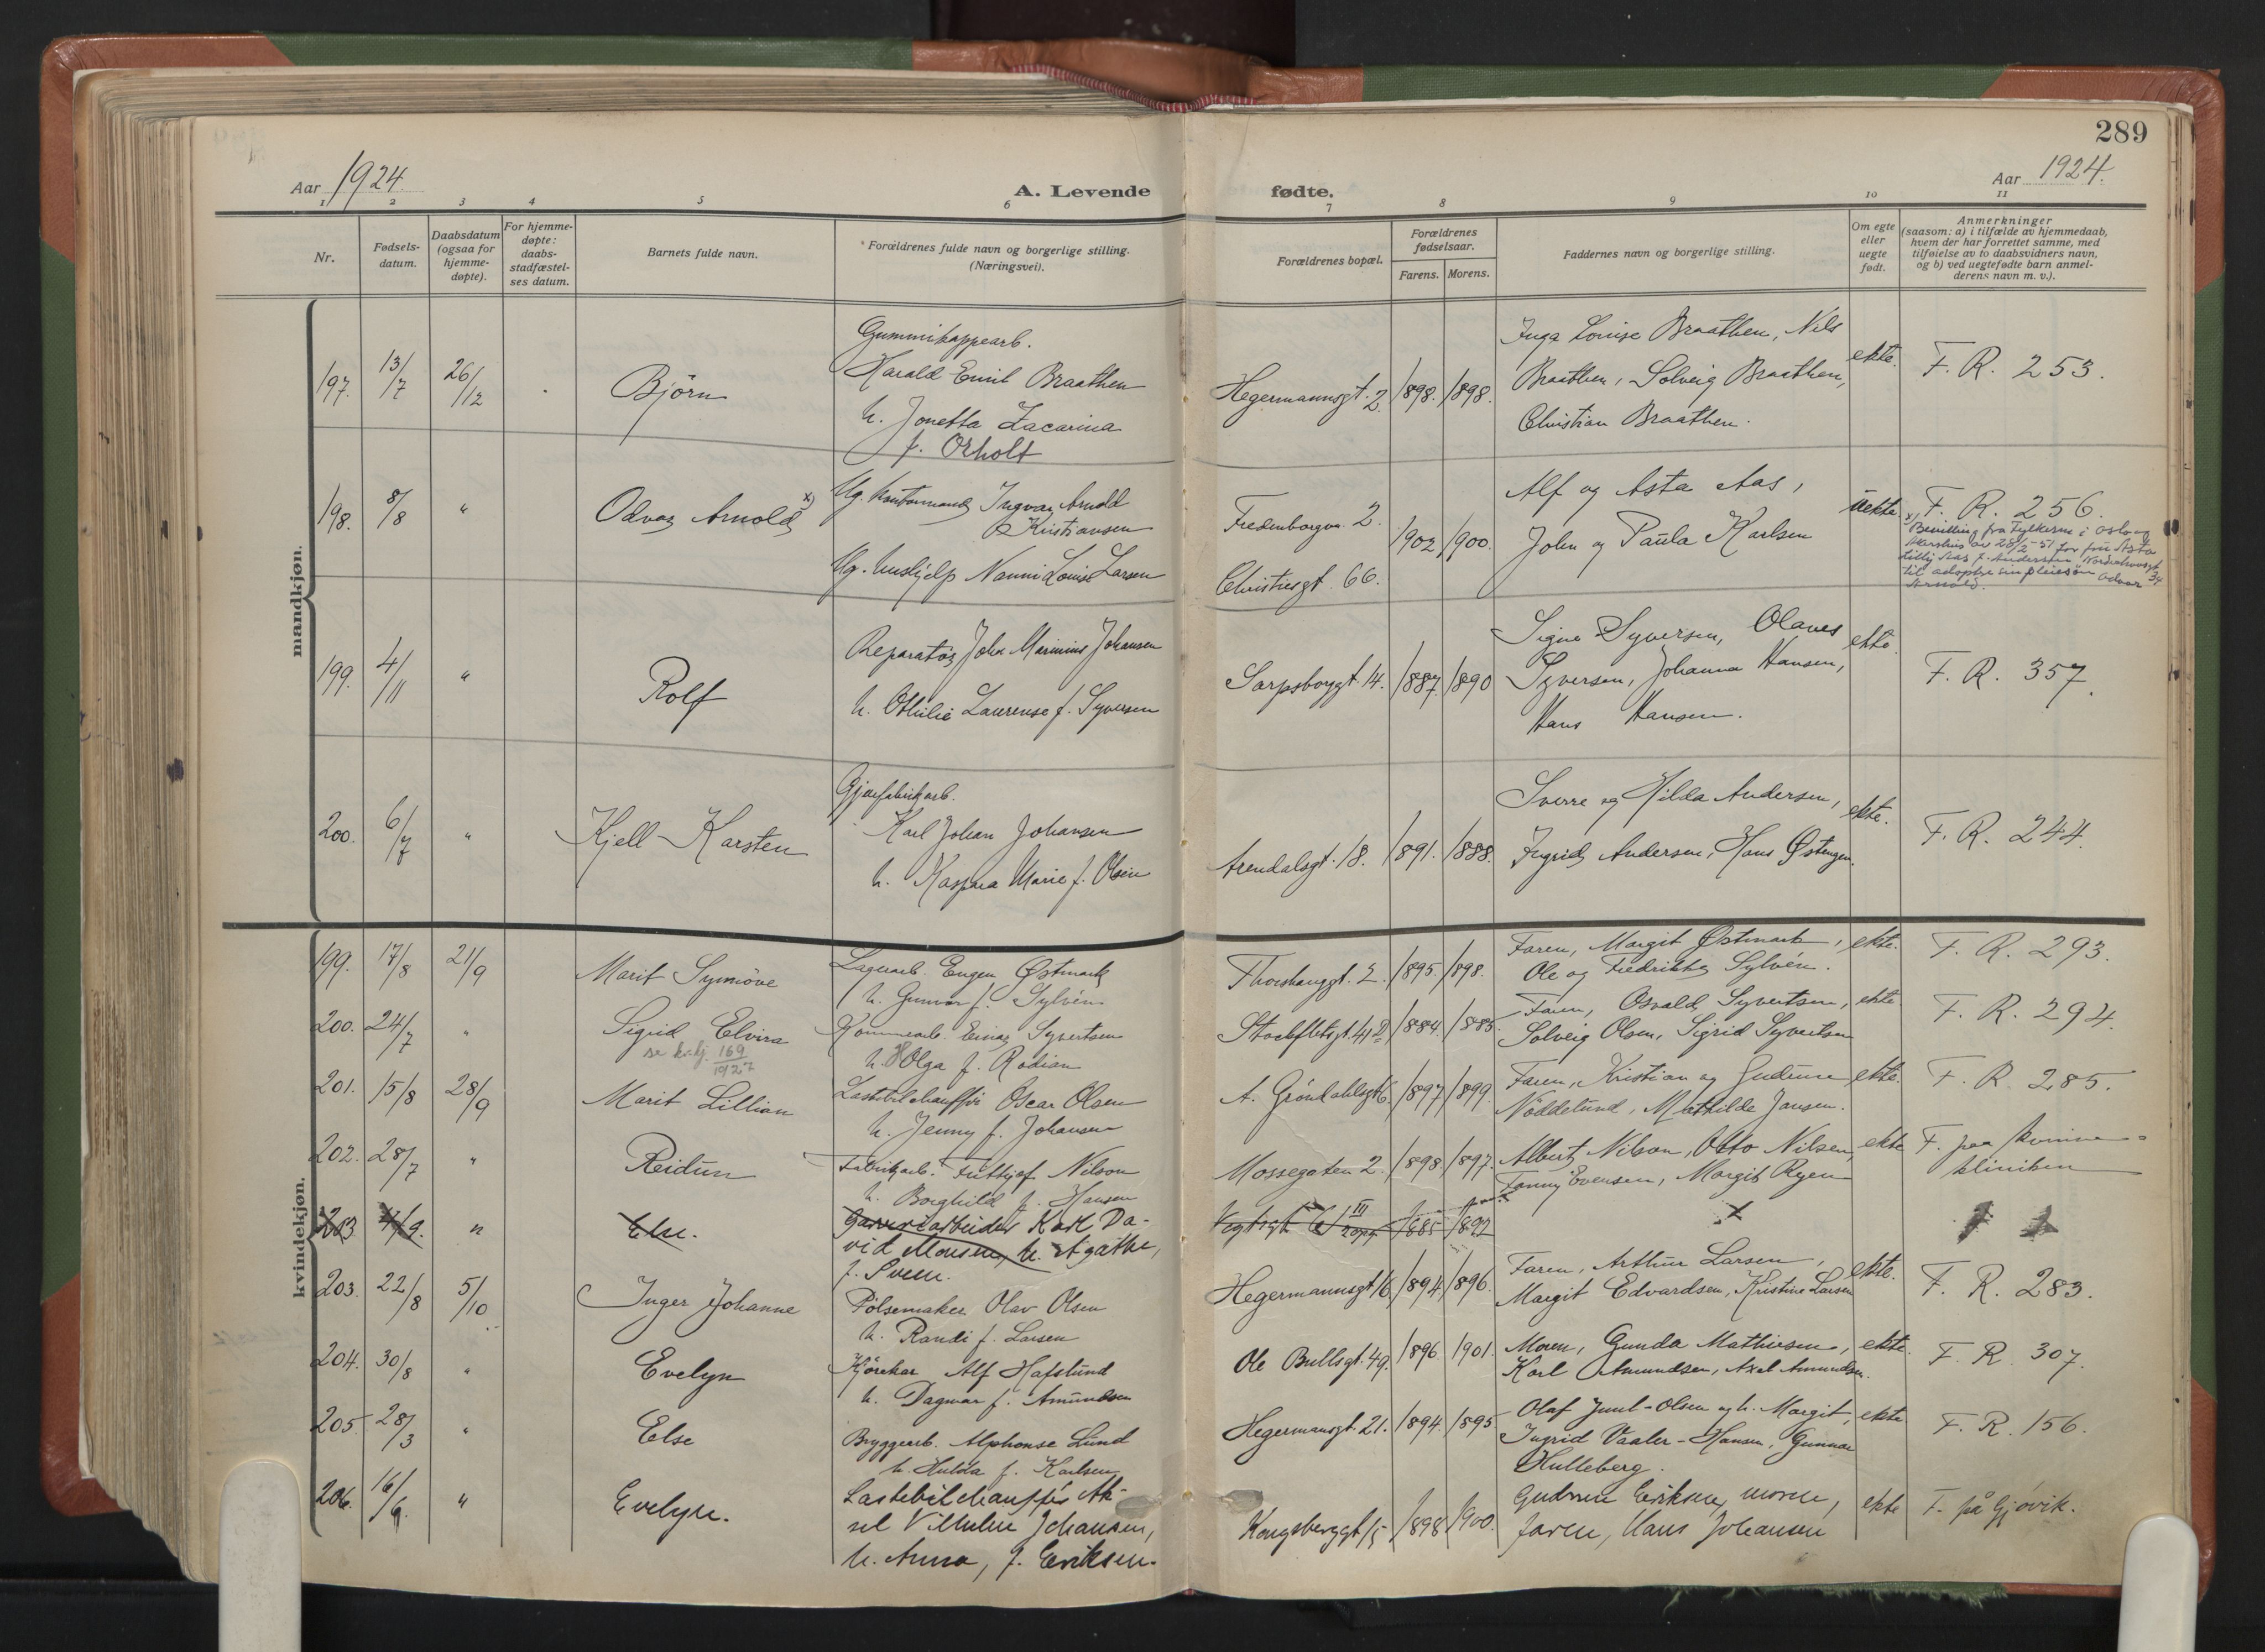 289
Aar 1924.
A. Levende fødte.
Aar 1924.
1 2 3 4 5 6 7 8 9 10 11
Nr.
Fødsels-
datum.
Daabsdatum
(ogsaa for
hjemme-
døpte).
For hjemme-
døpte:
daabs-
stadfæstel-
ses datum.
Barnets fulde navn.
Forældrenes fulde navn og borgerlige stilling.
(Næringsvei).
Forældrenes bopæl.
Forældrenes
fødselsaar.
Farens. Morens.
Faddernes navn og borgerlige stilling.
Om egte
eller
uegte
født.
Anmerkninger
(saasom: a) i tilfælde av hjemmedaab,
hvem der har forrettet samme, med
tilføielse av to daabsvidners navn,
og b) ved uegtefødte barn anmel-
derens navn m. v.).
mandkjøn.
197. 13/7 26/12 Björn
Gummikappearb.
Harald Emil Braathen
h. Jonetta Zacarina
f. Orholt
Hegermannsgt. 2. 1898. 1898.
Inga Louise Braathen, Nils
Braathen, Solveig Braathen,
Christian Braathen.
ekte. F. R. 253.
198. 8/8 " Odvar Arnold x)
Ug. kontormand Ingvar Arnold
Kristiansen
Ug. hushjelp Nanni Louise Larsen
Fredenborgvn. 2.
Christiesgt. 66.
1902 1900.
Alf og Asta Aas,
John og Paula Karlsen
uekte. F. R. 256.
x) Bevilling fra Fylkesm. i Oslo og
Akershus av 28/2-51 for fru Asta
Lilly Aas f. Andersen Nordahlsgt 34
til adoptere sin pleiesön Odvar
Arnold.
199. 4/11 " Rolf
Reparatör John Marinius Johansen
h. Othilie Laurense f. Syversen
Sarpsborggt. 14. 1887 1890
Signe Syversen, Olaves
Syversen, Johanna Hansen,
Hans Hansen.
ekte. F. R. 357.
200. 6/7 " Kjell Karsten
Gjærfabrikarb.
Karl Johan Johansen
h. Kaspara Marie f. Olsen
Arendalsgt. 18. 1891. 1888.
Sverre og Hilda Andersen,
Ingrid Andersen, Hans Østengen.
ekte. F. R. 244.
kvindekjøn.
199. 17/8 21/9 Marit Synnöve
Lagerarb. Eugen Østmark
h. Gunvor f. Sylvén
Thorshauggt. 2. 1895. 1898.
Faren, Margit Østmark,
Ole og Fredrikke Sylvén.
ekte. F. R. 293.
200. 24/7 " Sigrid Elvira
se k. lj. 169/1927
Kommunearb. Einar Syvertsen
h. Olga f. Rodian
Stockfletsgt. 41 1884. 1885.
Faren, Osvald Syvertsen,
Solveig Olsen, Sigrid Syvertsen
ekte. F. R. 294.
201. 15/8 28/9 Marit Lillian
Lastebilchaufför Oscar Olsen
h. Jenny f. Johansen
A. Gröndahlsgt 6. 1897 1899.
Faren, Kristian og Gudrun
Nöddelund, Mathilde Jansen.
ekte. F. R. 285.
202. 28/7 " Reidun
Fabrikarb. Fritthjof Nilson
h. Borghild f. Hansen
Mossegaten 2. 1898. 1897.
Albert Nilson, Otto Nilsen,
Fanny Evensen, Margit Ryen
ekte F. paa kvinne-
kliniken
203 4/9. " Else.
Garveriarbeider Karl Da-
vid Monsen, h. Agathe,
f. Sveen.
Vogtsgt III 1885 1892
203. 22/8 5/10 Inger Johanne
Pölsemaker Olav Olsen
h. Randi f. Larsen
Hegermannsgt 16. 1894. 1896.
Faren, Arthur Larsen,
Margit Edvardsen, Kristine Larsen
ekte. F. R. 283.
204. 30/8 " Evelyn
Kjörekar Alf Hafslund
h. Dagmar f. Amundsen
Ole Bullsgt. 49. 1896. 1901.
Moren, Gunda Mathiesen,
Karl Amundsen, Axel Amundsen.
ekte. F. R. 307.
205. 28/3 " Else
Bryggearb. Alphonse Lund
h. Hulda f. Karlsen
Hegermansgt. 21. 1894. 1895
Olaf Juul-Olsen og h. Margit,
Ingrid Vaaler-Hansen, Gunnar
Hulleberg.
ekte. F. R. 156.
206. 16/9. " Evelyn.
Lastebilchauffør Ak-
sel Vilhelm Johansen,
h. Anna, f. Eriksen.
Kongsberggt 15 1898 1900.
Gudrun Eriksen, moren,
faren, Hans Johansen
ekte F. på Gjøvik.